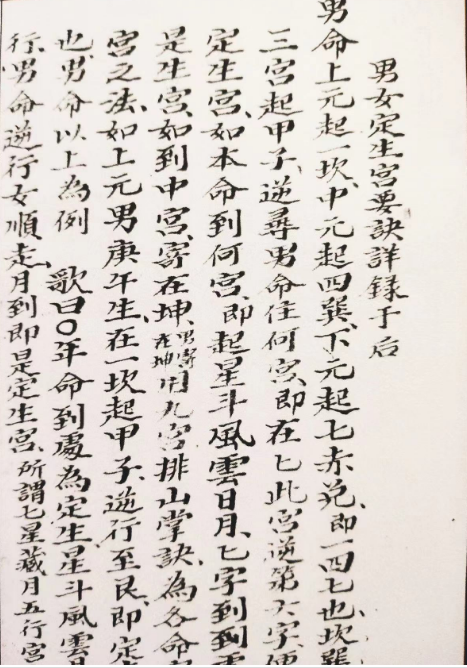 男女定生宮要訣詳録于后
男命上元起一坎、中元起四巽、下元起七赤兑、即一四七也、坎巽
三宮起甲子、逆尋男命住何宮、即在七此宮逆第六字、便
定生宮、如本命到何宮、即起星斗風雲日月、七字到到
是生宮、如到中宮、寄在坤、男寄在坤用九宮排山掌訣、為各命
宮之法、如上元男庚午生、在一坎起甲子、逆行至艮、即定
也、男命以上為例 歌曰〇年命到處為定生、星斗風雲
行、男命逆行女順走、月到即是定生宮、所謂七星藏月五行宮